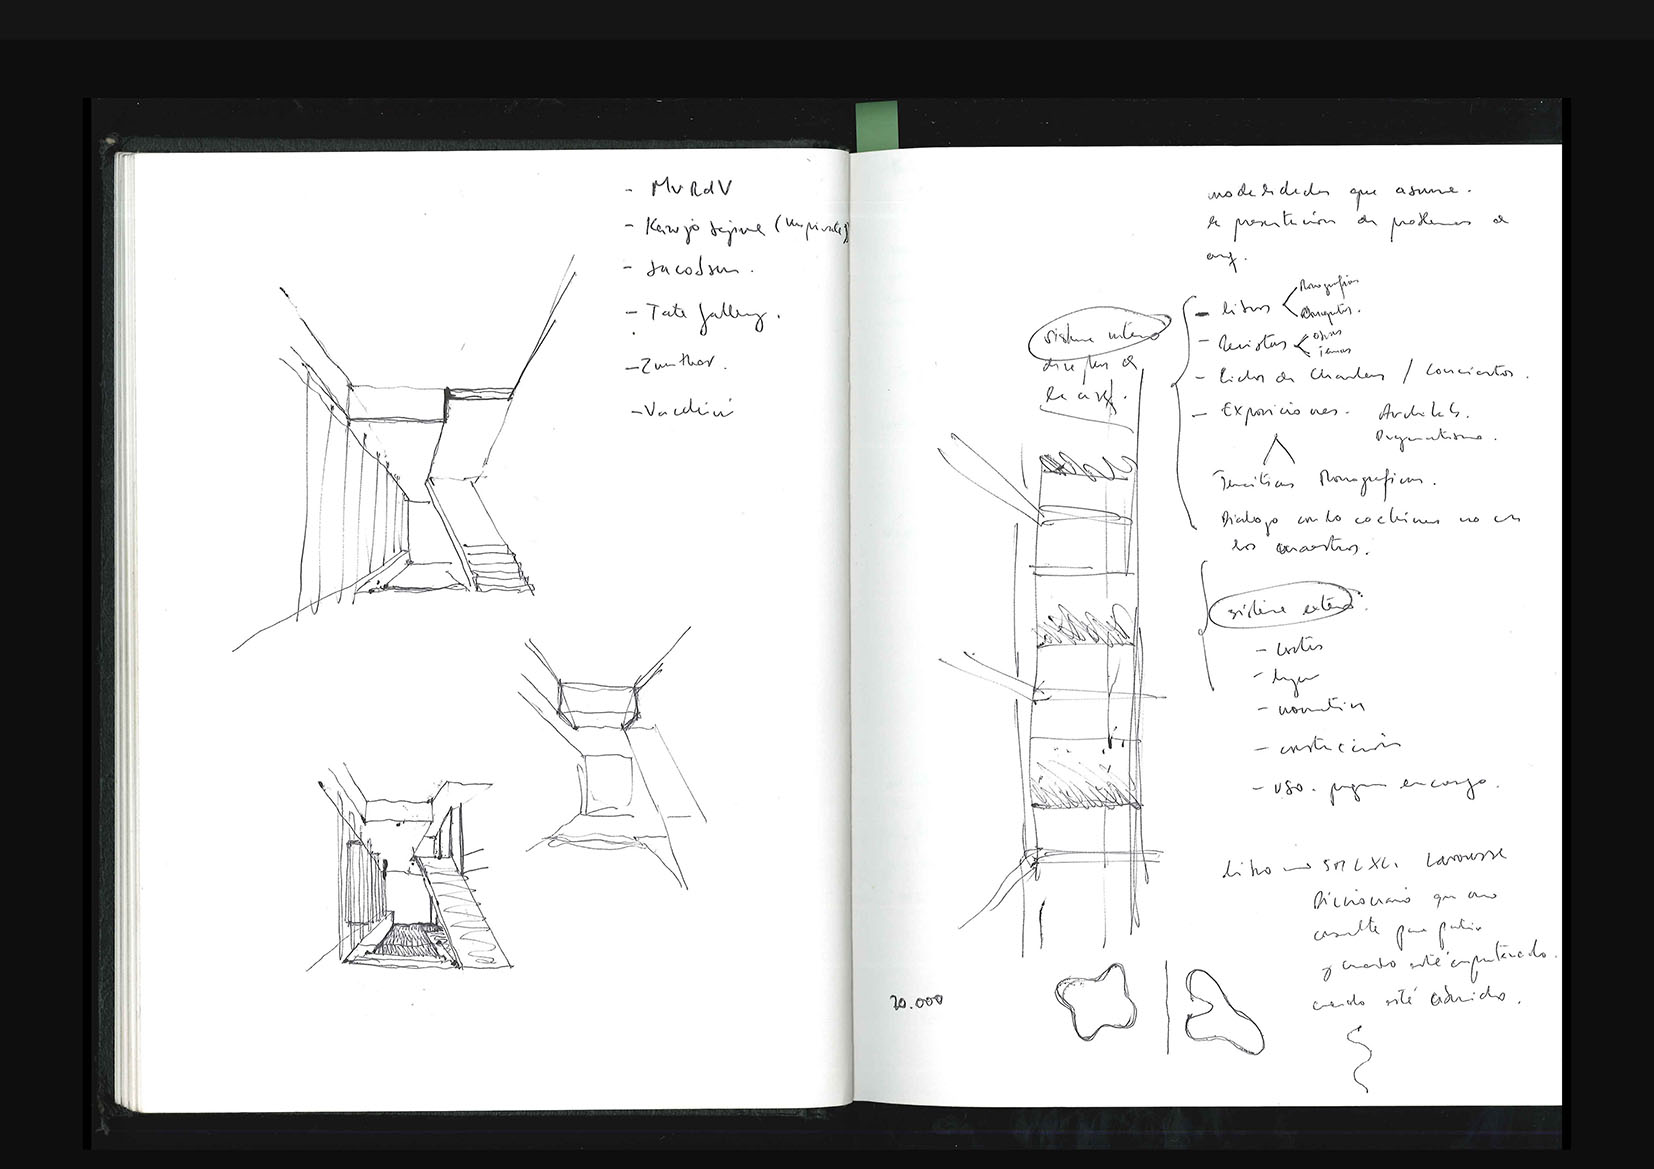 - MVRdV
- Kazujo Sejima
- Jacobsen.
- Tate Gallery.
- Zumthor.
modalidades que asume.
la presentación de problemas de
arq.
sistema interno
la arq.
- libros
Monografías
- Revistas
obras
temas
- Ciclos de Charlas / Conciertos.
- Exposiciones.
Archilab.
Pragmatismo.
Temáticas Monograficas.
Dialogo con lo cochino no con
los maestros.
sistema externo.
- costos
- lugar
- normativa
- construcción
- uso. programa encargo.
libro → SMLXL. Larousse
Diccionario que uno
consulte para
y cuando esté empantanado.
cuando esté aburrido.
20.000